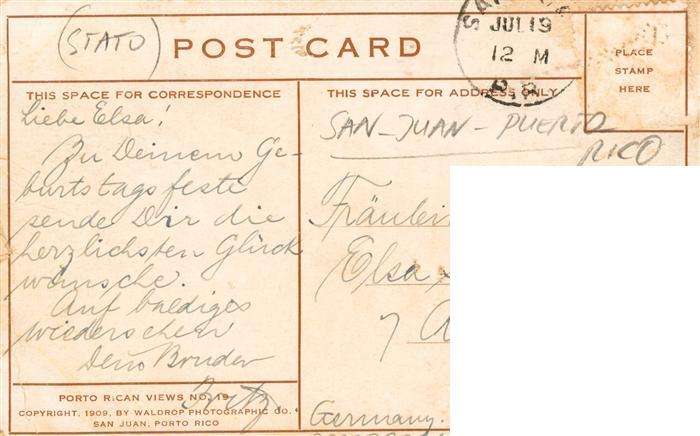 (STATO)
POST CARD
SAN JU
JUL 19
12 M
P.R.
PLACE
STAMP
HERE
THIS SPACE FOR CORRESPONDENCE
Liebe Elsa!
Zu Deinem Ge-
burtstagsfeste
sende Dir die
herzlichsten Glück
wünsche.
Auf baldiges
Wiedersehen
Dein Bruder
Fritz
PORTO RICAN VIEWS NO. 19
COPYRIGHT, 1909, BY WALDROP PHOTOGRAPHIC CO.
SAN JUAN, PORTO RICO
THIS SPACE FOR ADDRESS ONLY
SAN-JUAN-PUERTO
RICO
Fräulein
Elsa
7
Germany.